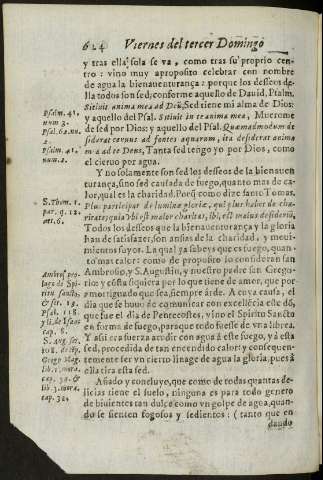 624 Viernes del tercer Domingo
y tras ella sola se va, como tras su proprio cen-
tro: vino muy aproposito celebrar con nombre
de agua la bienauenturança: porque los desseos de-
lla todos son sed; conforme aquello de Dauid, Psalm.
Psalm. 41.
num 3.
Sitiuit anima mea ad Deū, Sed tiene mi alma de Dios:
y aquello del Psal. Sitiuit in te anima mea, Muerome
Psal. 62. nu.
2.
de sed por Dios: y aquello del Psal. Quemadmodum de
siderat ceruus ad fontes aquarum, ita desiderat anima
Psalm. 41.
num. 2.
mea ad te Deus, Tanta sed tengo yo por Dios, como
el cieruo por agua.
Y no solamente son sed los desseos de la bienauen
turança, sino sed causada de fuego, quanto mas de ca-
lor, qual es la charidad. Porq̃ como dize santo Tomas.
S. Thom. 1.
par. q. 12.
art. 6.
Plus participat de lumine gloriæ, qui plus habet de cha-
ritate; quia vbi est maior charitas, ibi, est maius desideriū,
Todos los desseos que la bienauenturança y la gloria
han de satisfazer, son ansias de la charidad, y moui-
mientos suyos. La qual ya sabeys que es fuego, quan-
to mas calor: como de proposito lo consideran san
Ambrosio, y S. Augustin, y nuestro padre san Grego-
rio: y consta siquiera por lo que tiene de amor, que por
amortiguado que sea, siempre arde. A cuya causa, el
dia que se huuo de comunicar con excellēcia este dō,
que fue el dia de Pentecostes, vino el Spiritu Sancto
en forma de fuego, para que todo fuesse de vna librea.
Ambros. pro-
logo de Spi-
ritu sancto,
& ser. 19.
Psal. 118.
S. Aug. ser.
108. de tēp.
Greg. Mag.
lib. 1. mora.
cap. 30. &
lib. 3. mora.
cap. 32.
Y assi era fuerza acudir con agua à este fuego, y à esta
sed, procedida de tan encendido calor: y consequen-
temente ser vn cierto linage de agua la gloria, pues à
ella tira esta sed.
Añado y concluyo, que como de todas quantas de-
licias tiene el suelo, ninguna es para todo genero
de biuientes tan dulce como vn golpe de agua, quan-
do se sienten fogosos y sedientos: (tanto que en
dando